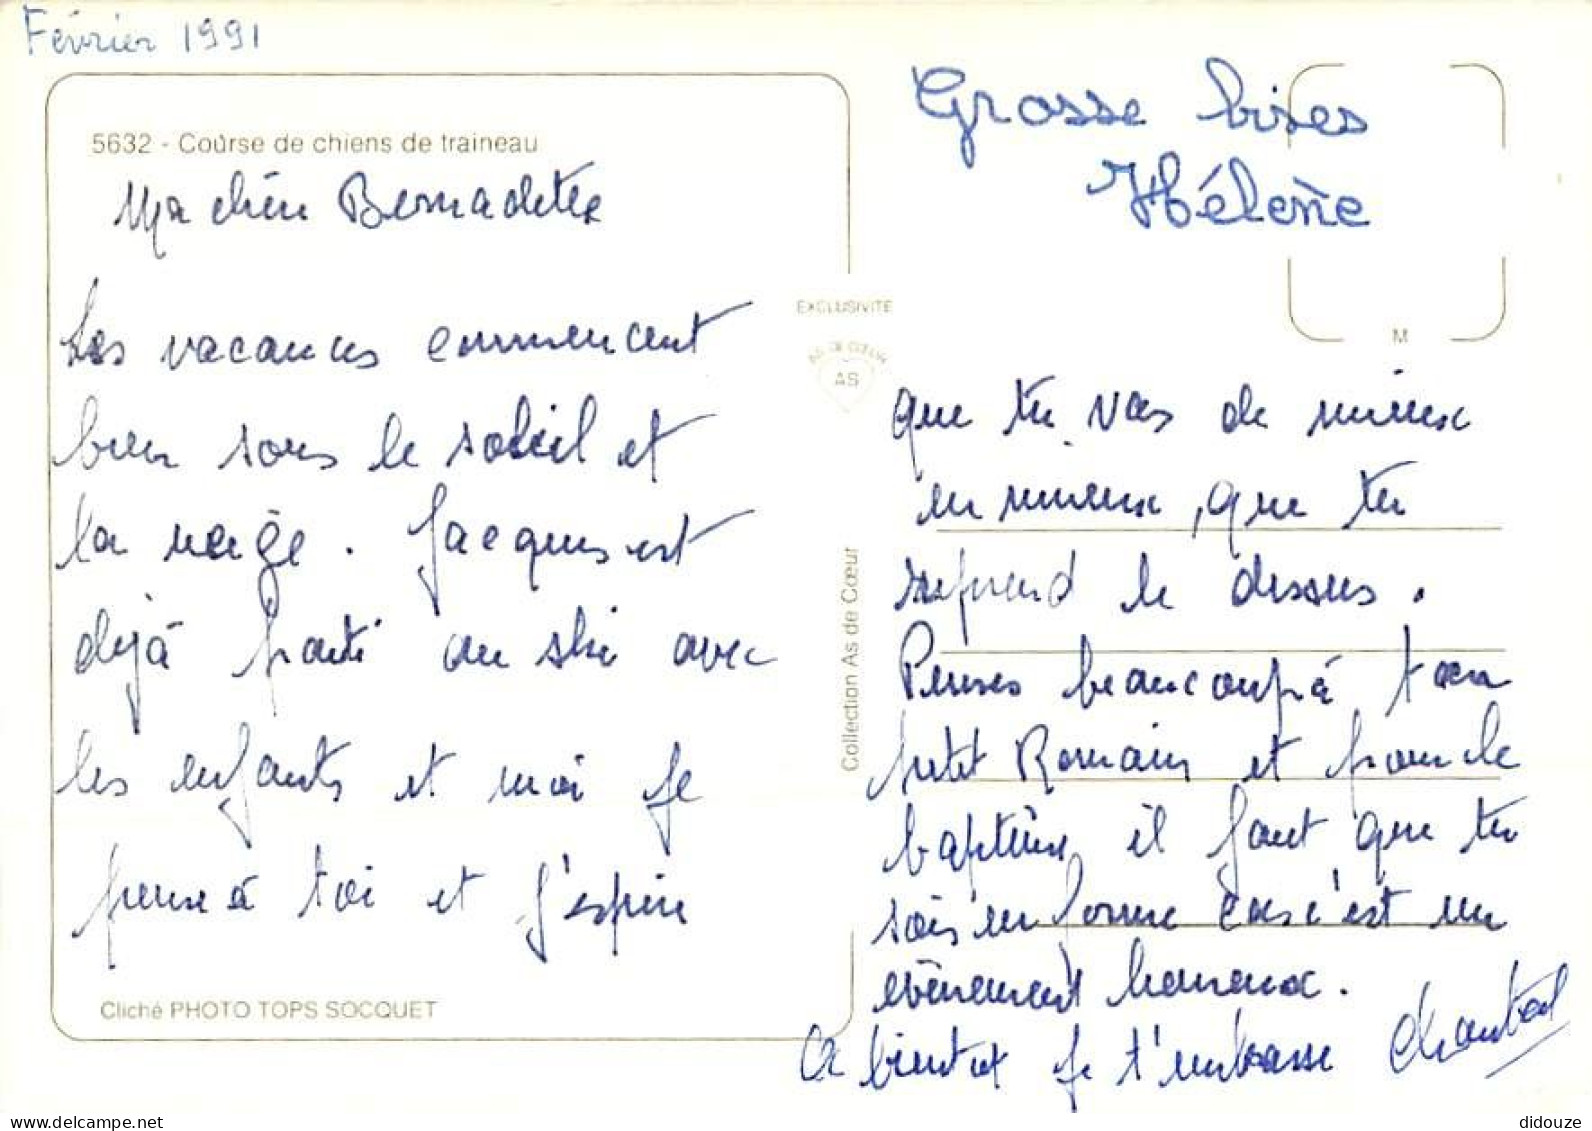 Février 1991
5632 - Course de chiens de traineau
Ma chère Bernadette
Les vacances commencent
bien sous le soleil et
la neige. Jacques est
déjà parti au ski avec
les enfants et moi je
pense à toi et j'espère
Cliché PHOTO TOPS SOCQUET
EXCLUSIVITE
AS DE CŒUR
AS
Collection As de Cœur
Grosse bises
Hélène
M
que tu vas de mieux
en mieux, que tu
reprend le dessus.
Penses beaucoup à ton
petit Romain et pour le
baptême il faut que tu
sois en forme car c'est un
évènement heureux.
A bientot je t'embrasse Chantal
delcampe.net
didouze